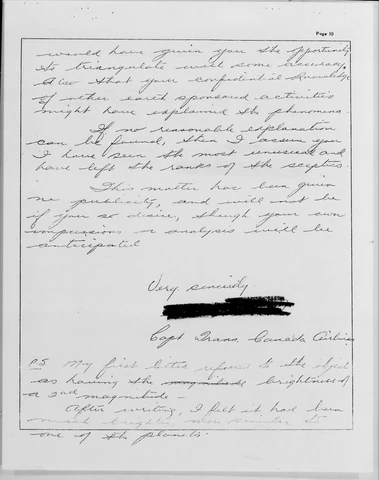 Page 10
would have given you the opportunity
to triangulate with some accuracy.
Also that your confidential knowledge
of other earth sponsored activities
might have explained the phenomena.
If no reasonable explanation
can be found, then I assure you
I have seen the most unusual and
have left the ranks of the sceptics.
This matter has been given
no publicity, and will not be
if you so desire, though your own
impressions or analysis will be
anticipated
Very sincerely
Capt Trans Canada Airlines
P.S. My first letter refers to the object
as having the brightness of
a 2nd magnitude -
After writing, I felt it had been
much brighter, more similar to
one of the planets.